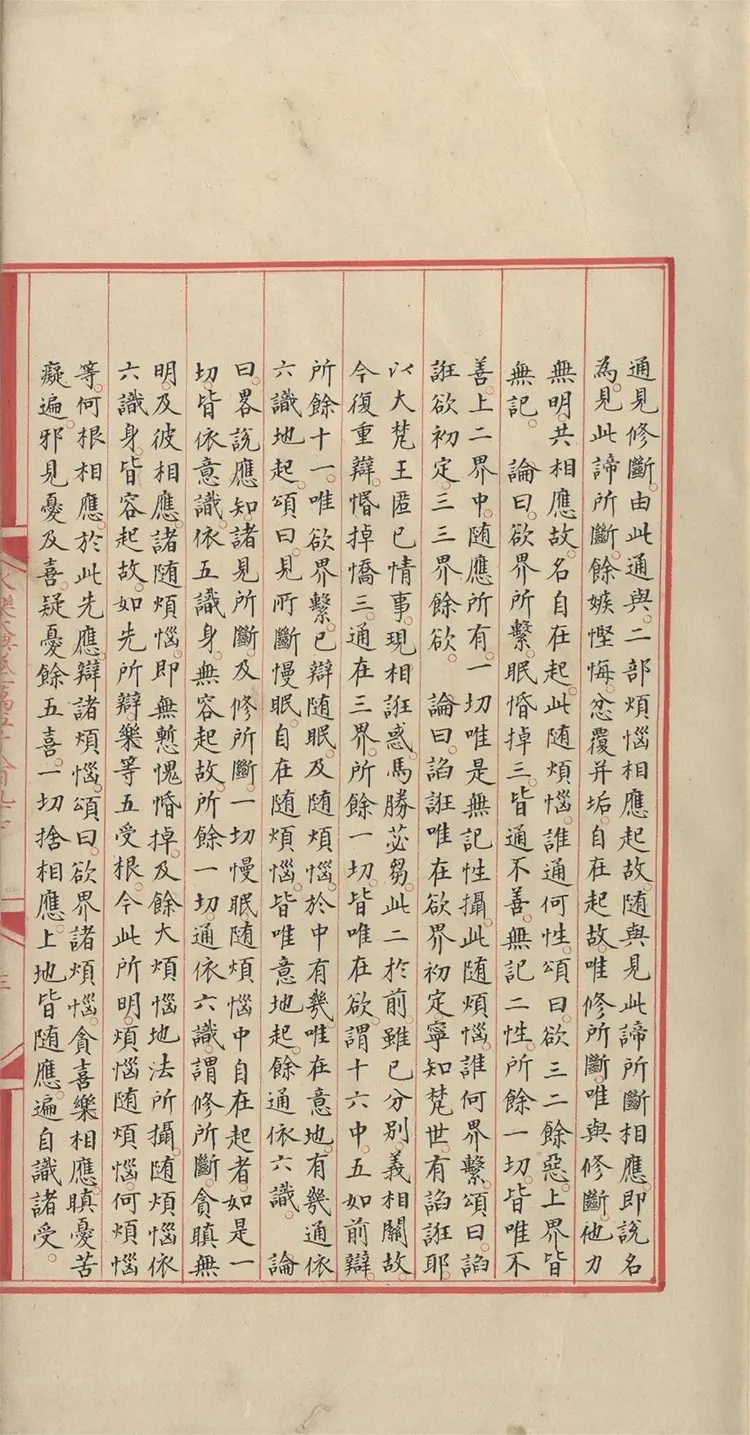 通見修斷。由此通與。二部煩惱相應起故。隨與見此諦所斷相應。即說名
為。見此諦所斷。餘嫉慳悔。忿覆并垢。自在起故。唯修所斷。唯與修斷。他力
無明共相應故。名自在起。此隨煩惱。誰通何性。頌曰。欲三二餘惡。上界皆
無記。論曰。欲界所繫。眠惛掉三。皆通不善。無記二性。所餘一切。皆唯不
善。上二界中。隨應所有。一切唯是無記性攝。此隨煩惱。誰何界繫。頌曰。諂
誑欲初定。三三界餘欲。論曰。諂誑唯在欲界初定。寧知梵世。有諂誑耶。
以大梵王匿已情事。現相誑惑。馬勝苾芻。此二於前。雖已分別。義相關故。
今復重辯。惛掉憍三。通在三界。所餘一切。皆唯在欲。謂十六中。五如前辯。
所餘十一。唯欲界繫。已辯隨眠。及隨煩惱。於中有幾。唯在意地。有幾通依
六識地起。頌曰。見所斷慢眠。自在隨煩惱。皆唯意地起。餘通依六識。論
曰。畧說應知。諸見所斷。及修所斷。一切慢眠隨煩惱中自在起者。如是一
切。皆依意識。依五識身。無容起故。所餘一切。通依六識。謂修所斷。貪瞋無
明。及彼相應。諸隨煩惱。即無慙愧惛掉。及餘大煩惱地法所攝。隨煩惱依
六識身。皆容起故。如先所辯。樂等五受根。今此所明。煩惱隨煩惱。何煩惱
等。何根相應。於此先應。辯諸煩惱。頌曰。欲界諸煩惱。貪喜樂相應。瞋憂苦
癡遍。邪見憂及喜。疑憂餘五喜。一切捨相應。上地皆隨應。遍自識諸受。